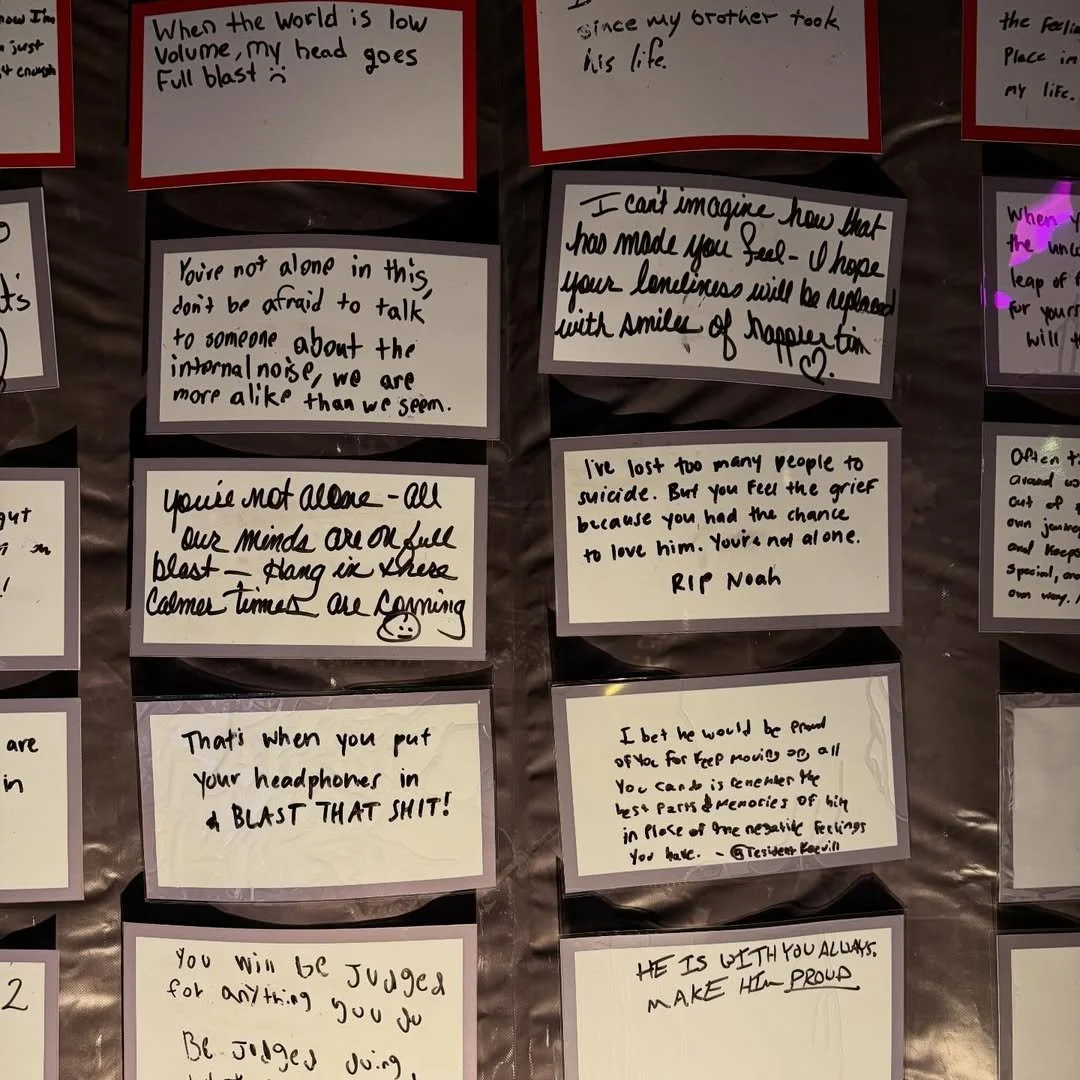 now I'm
just
enough
When the World is low
Volume, my head goes
Full blast :(
since my brother took
his life.
the Feelin
Place in
my life.
You're not alone in this,
don't be afraid to talk
to someone about the
internal noise, we are
more alike than we seem.
I can't imagine how that
has made you feel - I hope
your loneliness will be replaced
with smiles of happier tim
♡.
When y
the unc
leap of
for yours
will t
you're not alone - all
our minds are on full
blast — Hang in there
Calmer times are coming
gut
!
I've lost too many people to
suicide. But you feel the grief
because you had the chance
to love him. You're not alone.
RIP Noah
Often t
around
out of
own journ
and keep
special, an
own way.
are
in
That's when you put
your headphones in
& BLAST THAT SHIT!
I bet he would be proud
of you for keep moving on, all
You can do is remember the
best parts & memories of him
in place of the negative feelings
You have. - @Resident
2
You will be Judged
for anything you do
Be Judged doing
HE IS WITH YOU ALWAYS.
MAKE HIM PROUD